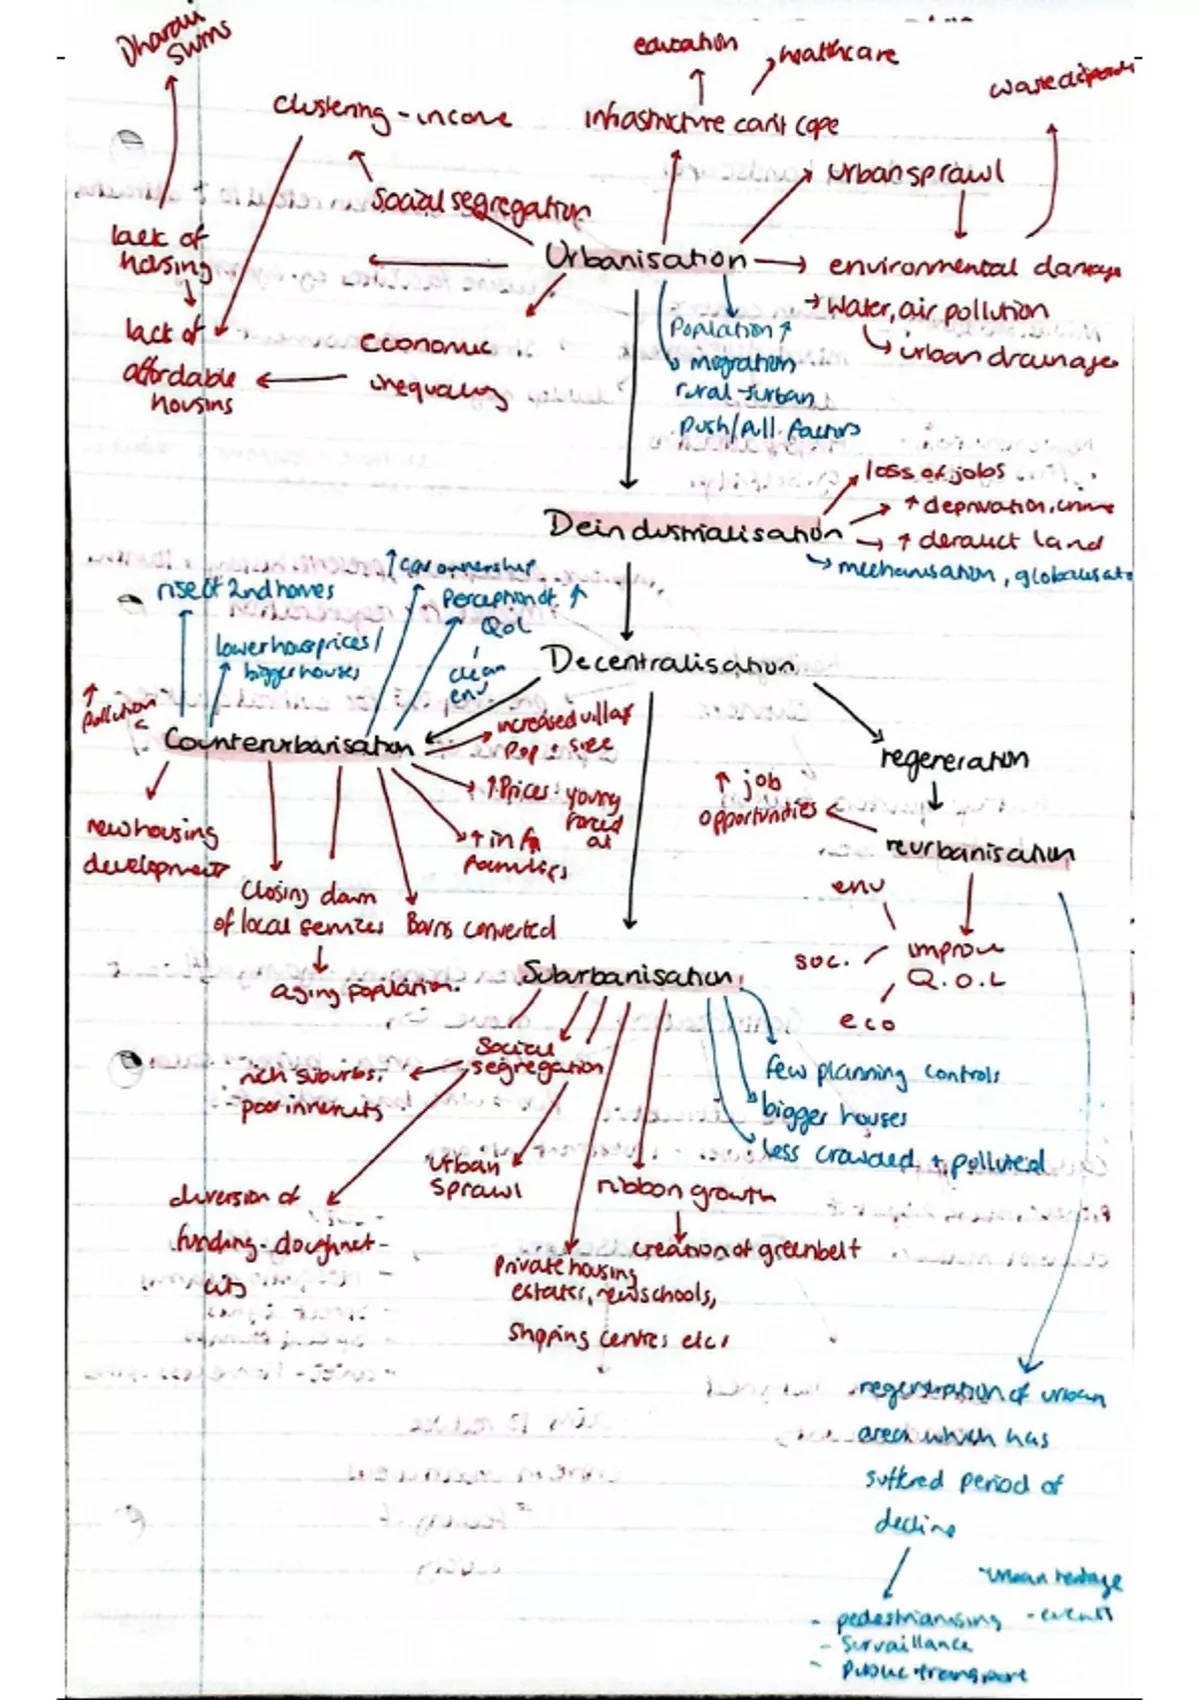 Dharavi
slums
education
healthcare
waste disposal
clustering - income
infrastructure can't cope
urban sprawl
Social segregation
lack of
housing
Urbanisation
environmental damage
water, air pollution
urban drainage
lack of
affordable
housing
economic
inequality
Population ↑
migration
rural-urban
push/pull factors
loss of jobs
↑ deprivation, crime
Deindustrialisation
↑ derelict land
mechanisation, globalisat
↑ car ownership
rise of 2nd homes
Perception of ↑
QoL
clean
env
lower house prices/
bigger houses
Decentralisation
↑
pollution
Counterurbanisation
increased village
pop + size
regeneration
↑ Prices: young
forced
out
↑ job
opportunities
new housing
development
↑ in
families
reurbanisation
closing down
of local services
Barns converted
aging population.
env
soc.
improve
Q.O.L
eco
Suburbanisation
Social
segregation
rich suburbs,
poor inner
few planning controls
bigger houses
less crowded + polluted
urban
sprawl
ribbon growth
creation of greenbelt
diversion of
funding - doughnut
Private housing
estates, new schools,
shopping centres etc.
regeneration of urban
area which has
suffered period of
decline
urban heritage
- pedestrianising
- events
- Survaillance
- Public transport